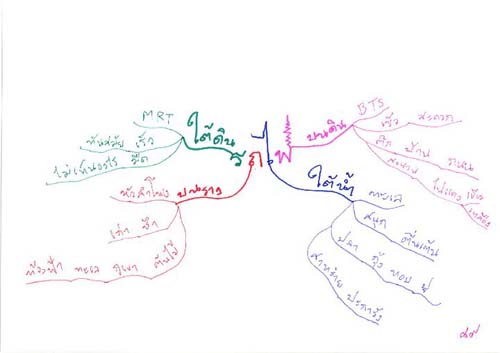 MRT
ใต้ดิน
ทันสมัย เร็ว
ไม่เห็นอะไร มืด
รถไฟ
หัวลำโพง บนราง
เก่า ช้า
ท้องฟ้า ทะเล ภูเขา ต้นไม้
บนดิน
BTS
เร็ว สะดวก
ตึก บ้าน ถนน
สะพาน ไฟแดง เขียว เหลือง
ใต้น้ำ
ทะเล
สนุก ตื่นเต้น
ปลา กุ้ง หอย ปู
สาหร่าย ปะการัง